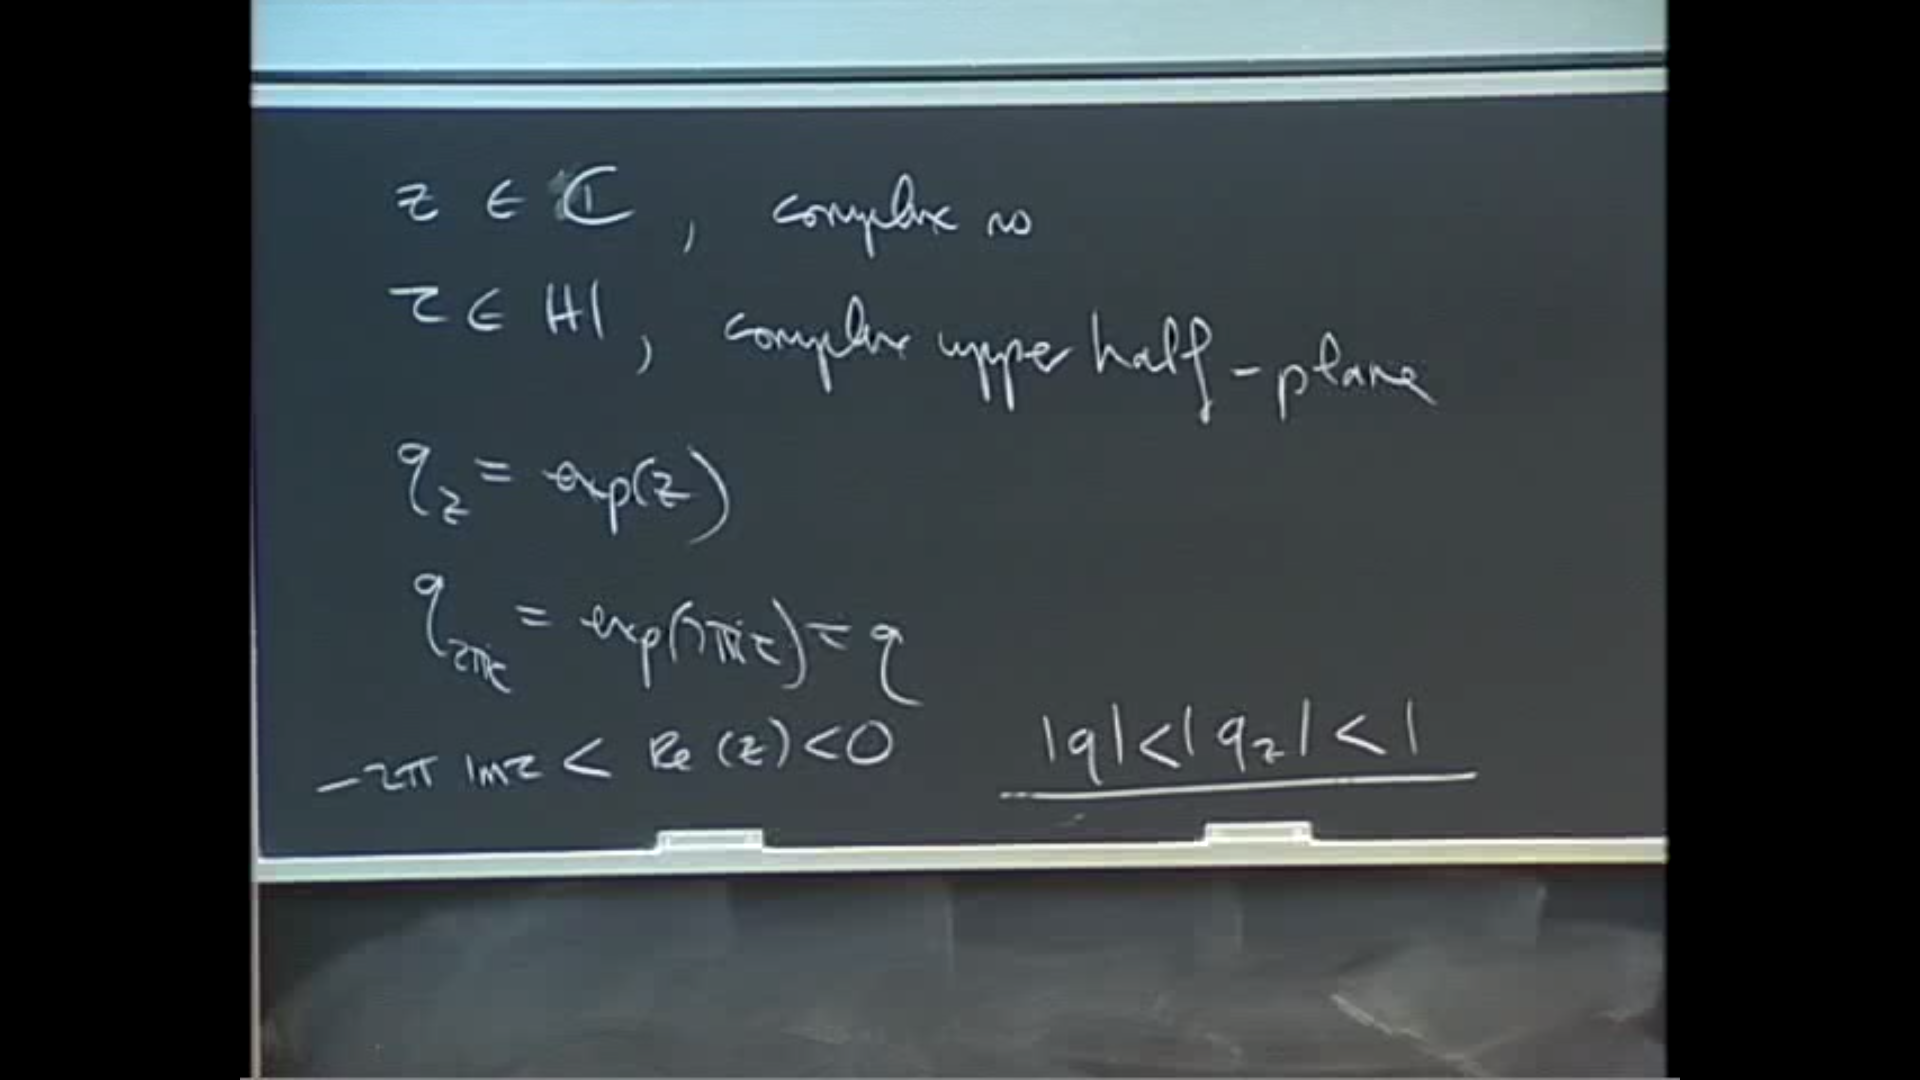 z ∈ ℂ, complex no
τ ∈ ℍ, complex upper half-plane
q_z = exp(z)
q_{2πiτ} = exp(2πiτ) = q
-2π Im τ < Re(z) < 0
|q| < |q_z| < 1